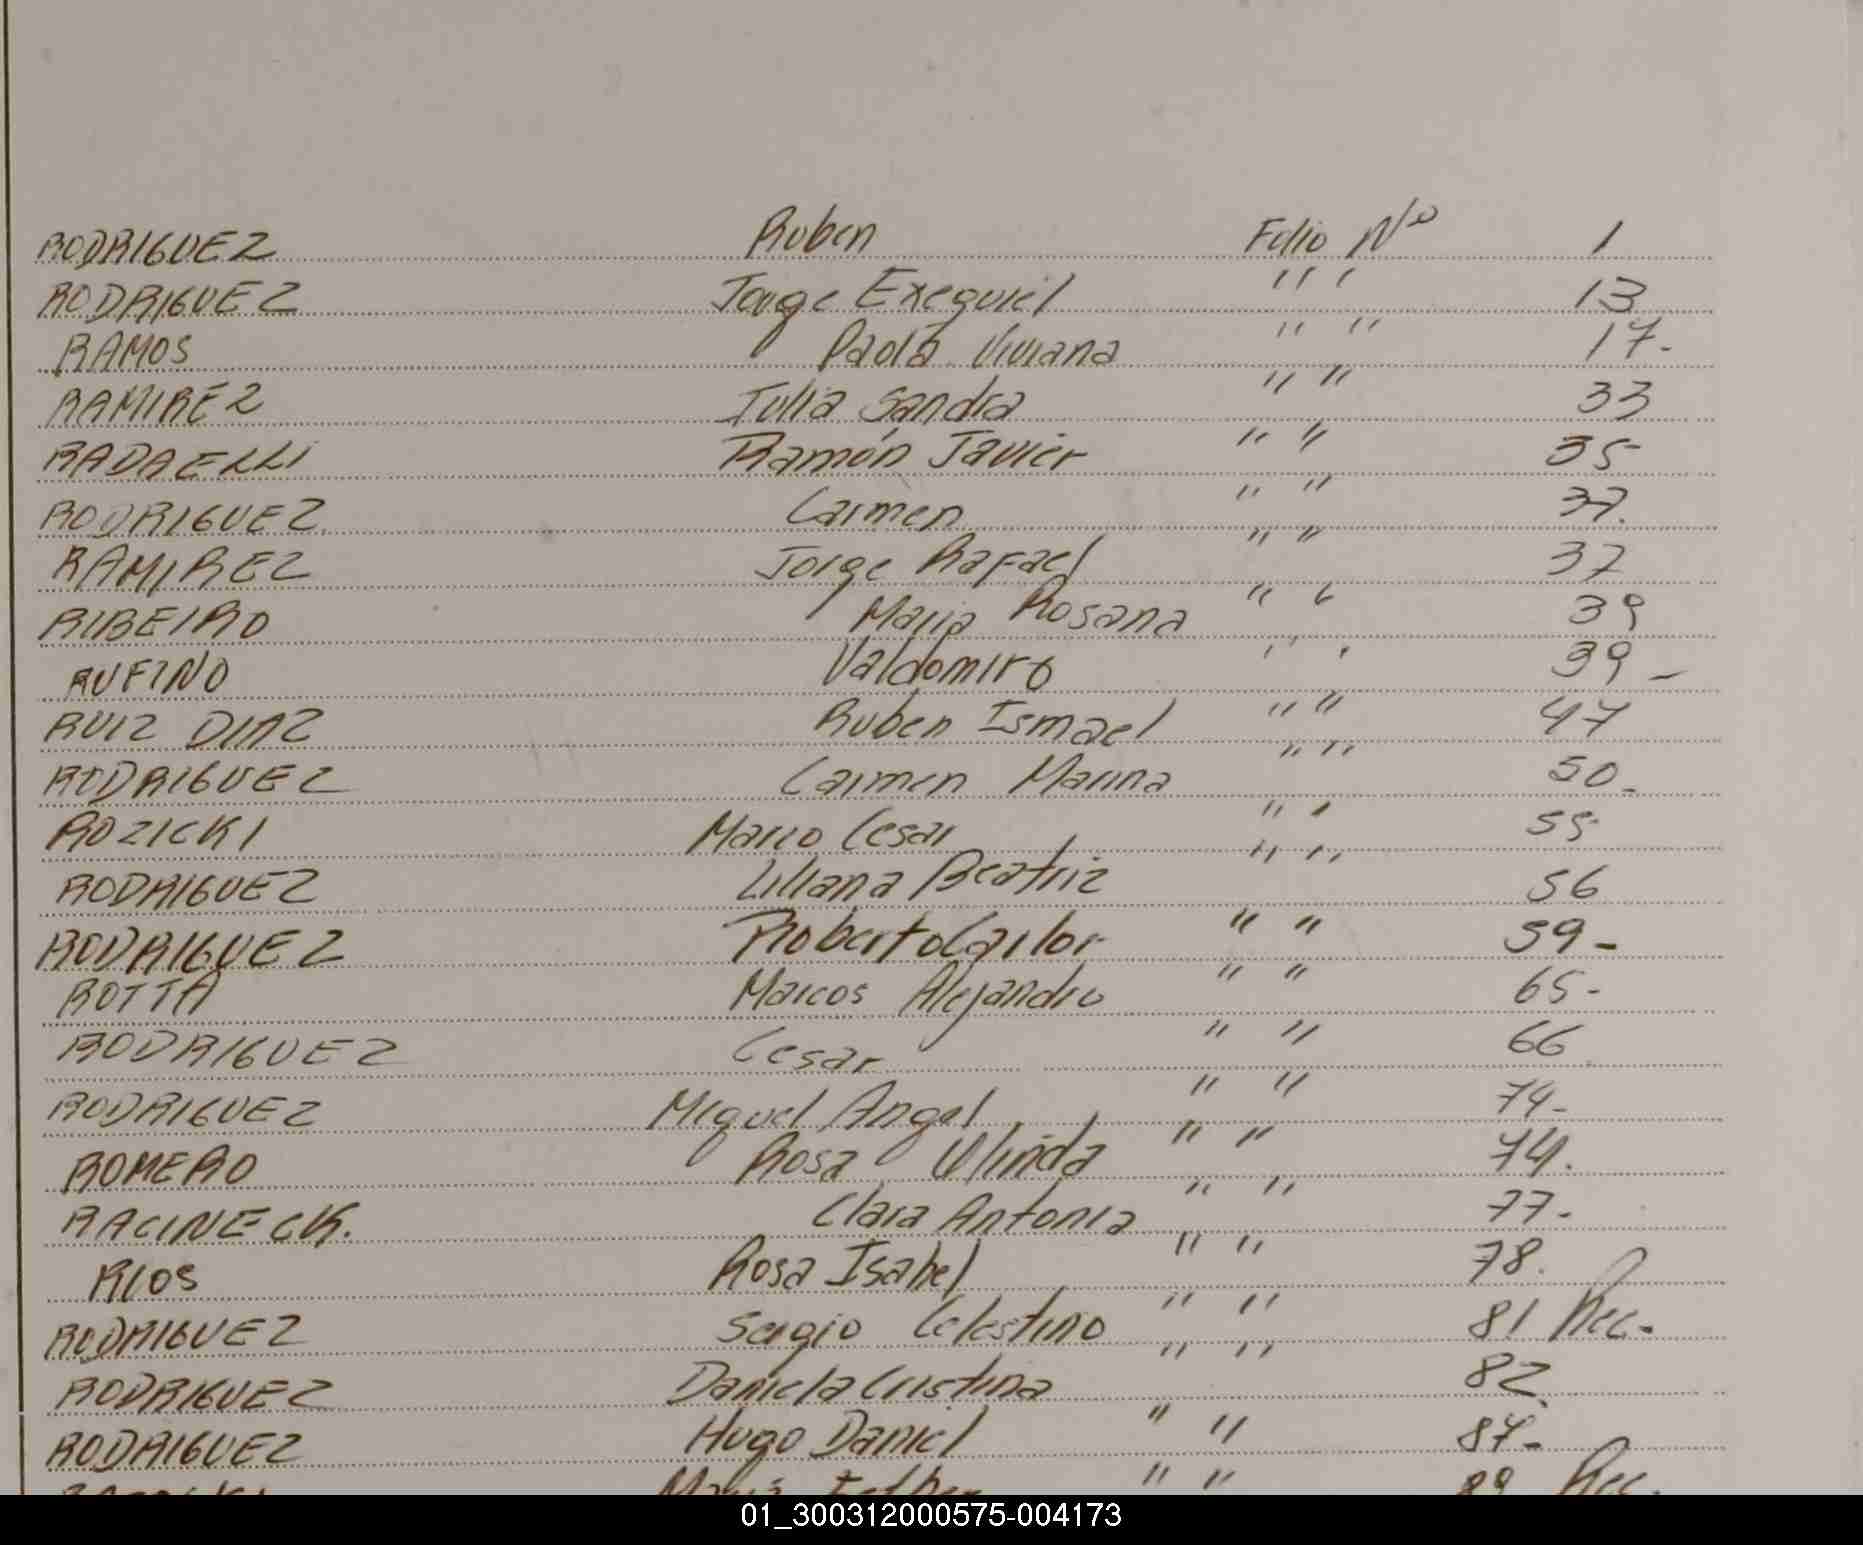 RODRIGUEZ Ruben Folio Nº 1
RODRIGUEZ Jorge Exequiel " " 13
RAMOS Paola Viviana " " 17-
RAMIREZ Julia Sandra " " 33
RADAELLI Ramón Javier " " 35
RODRIGUEZ Carmen " " 37.
RAMIREZ Jorge Rafael " " 37
RIBEIRO Maria Rosana " " 39
RUFINO Valdomiro " " 39-
RUIZ DIAZ Ruben Ismael " " 47
RODRIGUEZ Carmen Marina " " 50-
ROZICKI Mario Cesar " " 55
RODRIGUEZ Liliana Beatriz " " 56
RODRIGUEZ Roberto Carlos " " 59-
ROTTA Marcos Alejandro " " 65-
RODRIGUEZ Cesar " " 66
RODRIGUEZ Miguel Angel " " 74-
ROMERO Rosa " " 74.
RACINECK. Clara Antonia " " 77-
RIOS Rosa Isabel " " 78.
RODRIGUEZ Sergio Celestino " " 81 Rec.
RODRIGUEZ Daniela Cristina " " 82
RODRIGUEZ Hugo Daniel " " 87-
Maria Esther " " 89 Rec.
01_300312000575-004173